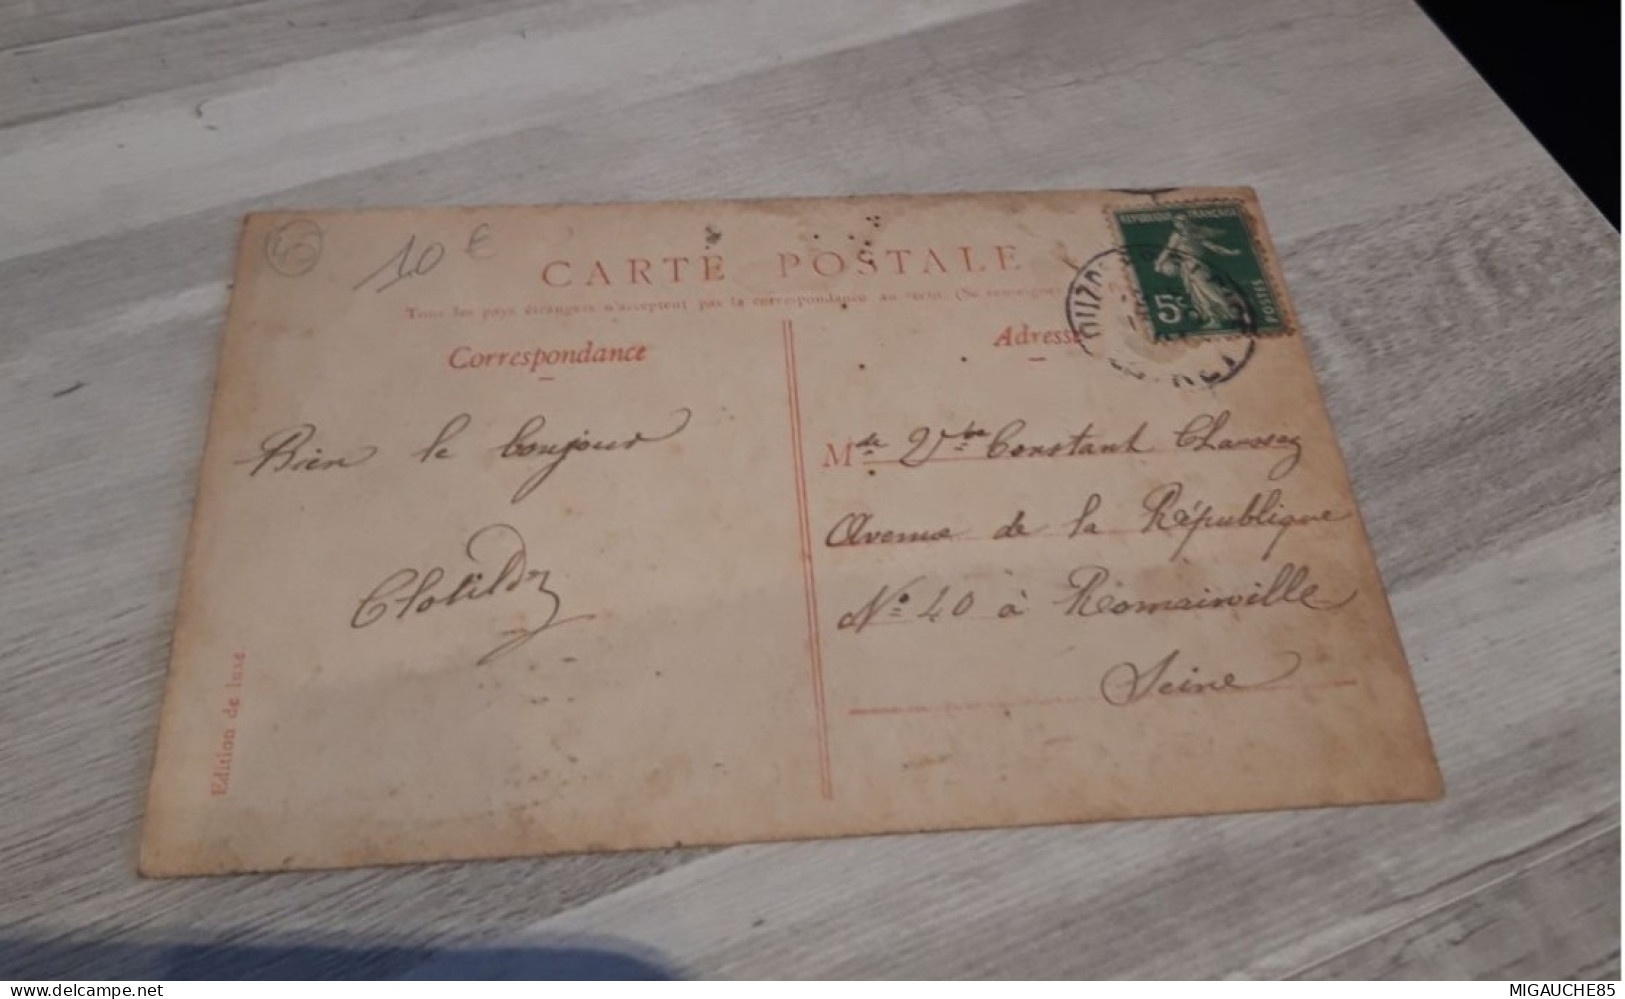 40
10 €
CARTE POSTALE
Tous les pays étrangers n'acceptent pas la correspondance au verso. (Se renseigner
Correspondance
Adresse
REPUBLIQUE FRANÇAISE
5c
POSTES
Bien le bonjour
Clotilde
Mde Vve Constant Chaussey
Avenue de la République
N° 40 à Romainville
Seine
Edition de luxe.
delcampe.net
MIGAUCHE85